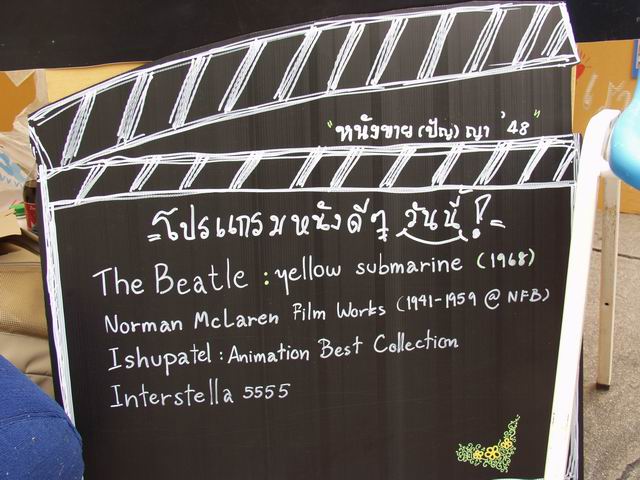 "หนังขาย (ปัญ) ญา '48"
=โปรแกรมหนังดีๆ วันนี้!=
The Beatle : yellow submarine (1968)
Norman McLaren Film Works (1941-1959 @ NFB)
Ishupatel : Animation Best Collection
Interstella 5555